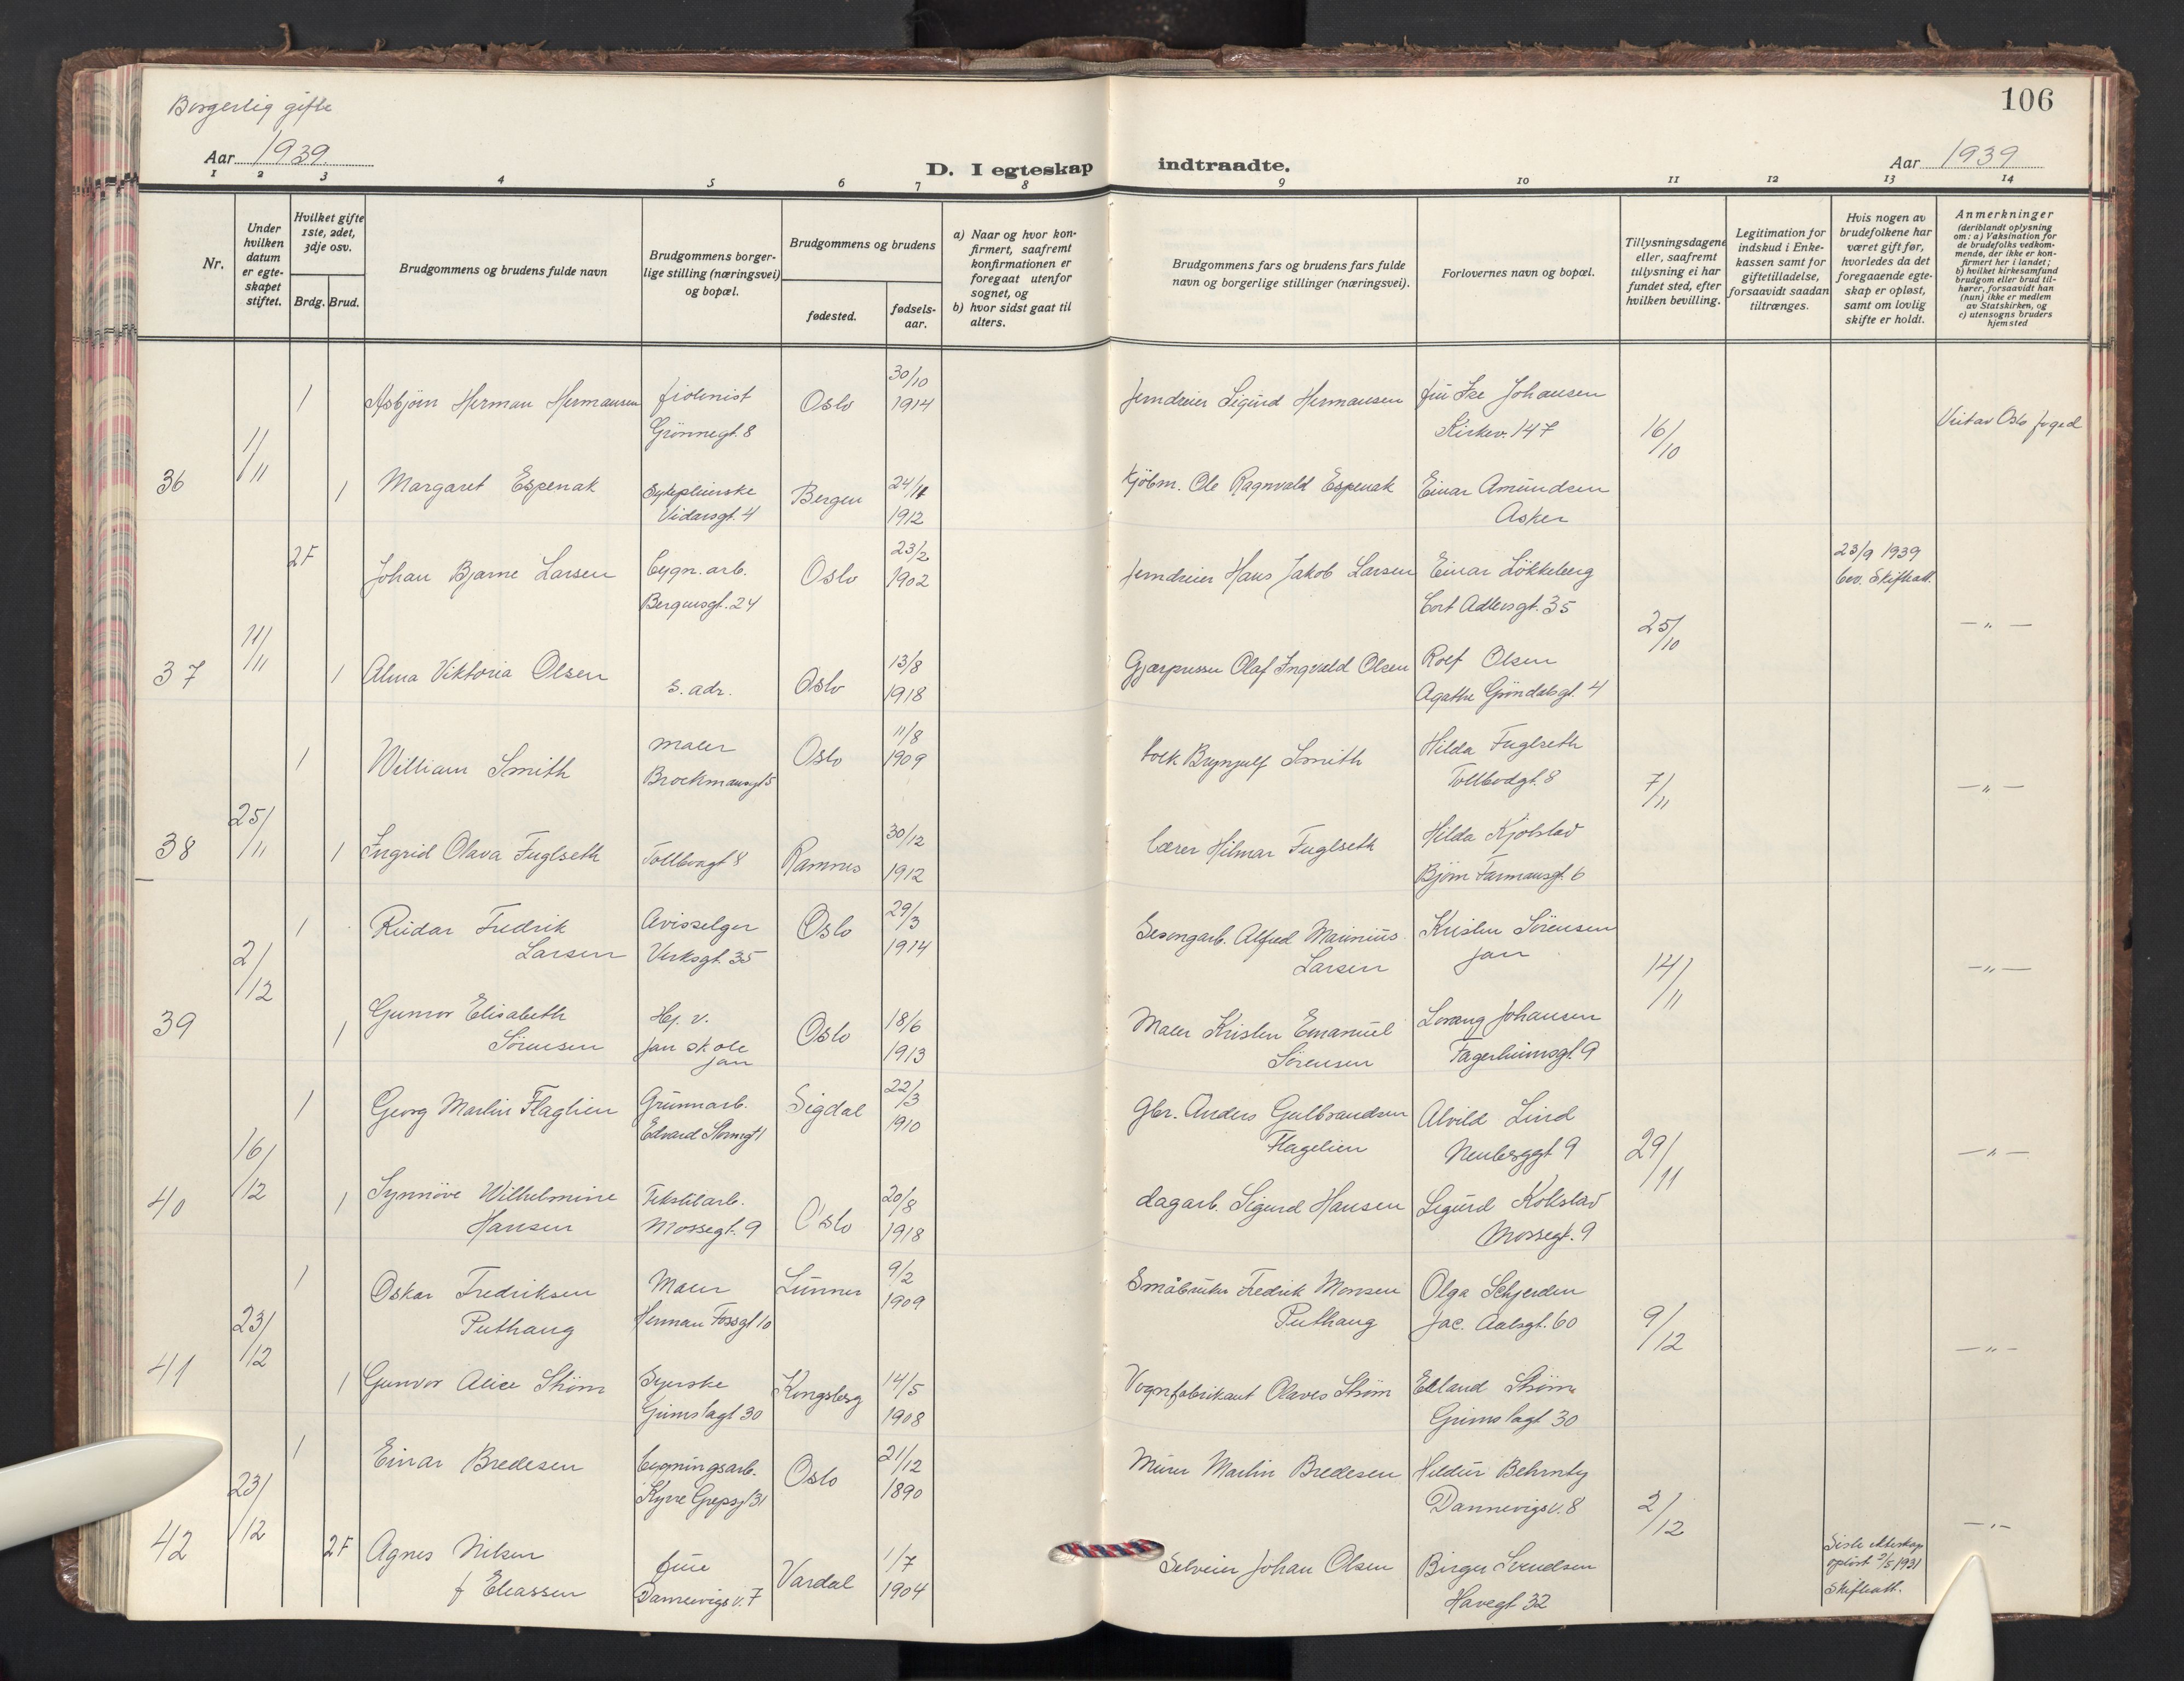 Borgerlig gifte
106
Aar 1939.
D. I egteskap indtraadte.
Aar 1939
1 2 3 4 5 6 7 8 9 10 11 12 13 14
Nr.
Under hvilken datum er egteskapet stiftet.
Hvilket gifte 1ste, 2det, 3dje osv.
Brdg. Brud.
Brudgommens og brudens fulde navn
Brudgommens borgerlige stilling (næringsvei) og bopæl.
Brudgommens og brudens
fødested.
fødselsaar.
a) Naar og hvor konfirmert, saafremt konfirmationen er foregaat utenfor sognet, og
b) hvor sidst gaat til alters.
Brudgommens fars og brudens fars fulde navn og borgerlige stillinger (næringsvei).
Forlovernes navn og bopæl.
Tillysningsdagene eller, saafremt tillysning ei har fundet sted, efter hvilken bevilling.
Legitimation for indskud i Enkekassen samt for giftetilladelse, forsaavidt saadan tiltrænges.
Hvis nogen av brudefolkene har været gift før, hvorledes da det foregaaende egteskap er opløst, samt om lovlig skifte er holdt.
Anmerkninger (deriblandt oplysning om: a) Vaksination for de brudefolks vedkommende, der ikke er konfirmert her i landet; b) hvilket kirkesamfund brudgom eller brud tilhører, forsaavidt han (hun) ikke er medlem av Statskirken, og c) utensogns bruders hjemsted
36 11/11
1 Asbjørn Herman Hermansen fiolinist Grønnegt. 8 Oslo 30/10 1914 Jerndreier Sigurd Hermansen Johansen Kirkev. 147 16/10 Oslo foged
1 Margaret Espenak Sykepleierske Vidarsgt. 4 Bergen 24/11 1912 Kjøbm. Ole Ragnvald Espenak Einar Amundsen Asker
37 11/11
2F Johan Bjarne Larsen bygn. arb. Bergensgt. 24 Oslo 23/2 1902 Jerndreier Hans Jakob Larsen Einar Løkkeberg Cort Adlersgt. 35 25/10 23/9 1939 bev. Skifteatt. — " —
1 Alma Viktoria Olsen s. adr. Oslo 13/8 1918 Olaf Ingvald Olsen Rolf Olsen Agathe Grøndalsgt. 4
38 25/11
1 William Smith Maler Brockmannsgt 5 Oslo 11/8 1909 Brynjulf Smith Hilda Fuglseth Tollbodgt. 8 7/11 — " —
1 Ingrid Olava Fuglseth Tollbugt 8 Ramnes 30/12 1912 Lærer Hilmar Fuglseth Hilda Kjølstad Bjørn Farmansgt. 6
39 2/12
1 Reidar Fredrik Larsen Avisselger Verksgt. 35 Oslo 29/3 1914 Sesongarb. Alfred Marinius Larsen Kristen Sørensen Jan 14/11 — " —
1 Gunvor Elisabeth Sørensen Hj. v. Jan skole Jan Oslo 18/6 1913 Maler Kristen Emanuel Sørensen Lorang Johansen Fagerheimsgt. 9
40 16/12
1 Georg Martin Flaglien Grunnarb. Edvard Stormsgt 1 Sigdal 22/3 1910 Gbr. Anders Gulbrandsen Flagelien Alvild Lind Neuberggt 9 29/11 — " —
1 Synnøve Wilhelmine Hansen Tekstilarb. Mossegt. 9 Oslo 20/8 1918 dagarb. Sigurd Hansen Sigurd Kolstad Mossegt. 9
41 23/12
1 Oskar Fredriksen Puthaug Maler Herman Fossgt 10 Lunner 9/2 1909 Småbruker Fredrik Monsen Puthaug Olga Schjerden Jac. Aalsgt. 60 9/12 — " —
1 Gunvor Alice Strøm Syerske Grimstagt 30 Kongsberg 14/5 1908 Vognfabrikant Olaves Strøm Erland Strøm Grimstagt 30
42 23/12
1 Einar Bredesen bygningsarb. Kyrre Grepsgt 31 Oslo 21/12 1890 Murer Martin Bredesen Hildur Dannevigsv. 8 2/12 — " —
2F Agnes Nilsen f Eliassen frue Dannevigsv. 7 Vardal 1/7 1904 Selveier Johan Olsen Birger Svendsen Havegt 32 Siste ekteskap opløst 9/5 1931 Skifteatt.